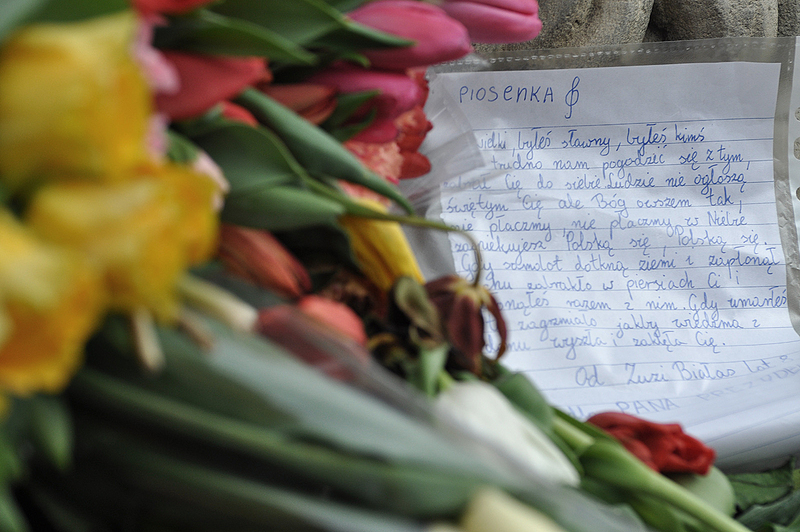 PIOSENKA
byłeś sławny, byłeś kimś
trudno nam pogodzić się z tym,
Cię do siebie! Ludzie nie ogłoszą
świętym Cię ale Bóg owszem tak,
nie płaczmy, nie płaczmy, w Niebie
Polską się, Polską się.
Gdy samolot dotkną ziemi i zapłonął
zabrakło w piersiach Ci i
razem z nim. Gdy umarłeś
zagrzmiało jakby wiedźma z
wyszła i zaklęła Cię.
Od Zuzi Białas lat
PANA